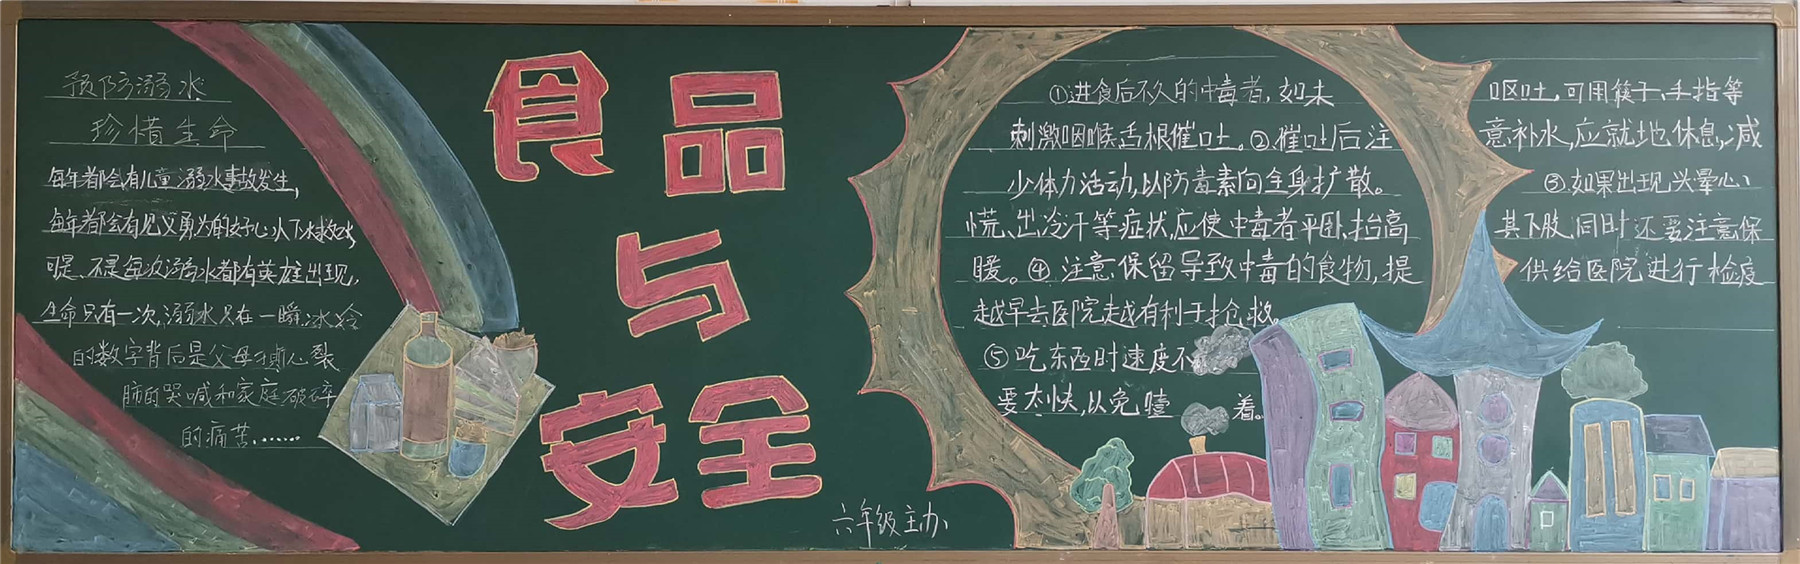 预防溺水
珍惜生命
每年都会有儿童溺水事故发生,
每年都会有见义勇为的好心人下水救人,
可是、不是每次溺水都有英雄出现,
生命只有一次,溺水只在一瞬,冰冷
的数字背后是父母撕心裂
肺的哭喊和家庭破碎
的痛苦.……
食品
与
安全
六年级主办
①进食后不久的中毒者,如未呕吐,可用筷子、手指等
刺激咽喉舌根催吐。②催吐后注意补水,应就地休息,减
少体力活动,以防毒素向全身扩散。③如果出现头晕心、
慌、出冷汗等症状,应使中毒者平卧,抬高其下肢,同时还要注意保
暖。④注意保留导致中毒的食物,提供给医院进行检疫
越早去医院越有利于抢救。
⑤吃东西时速度不
要太快,以免噎着。